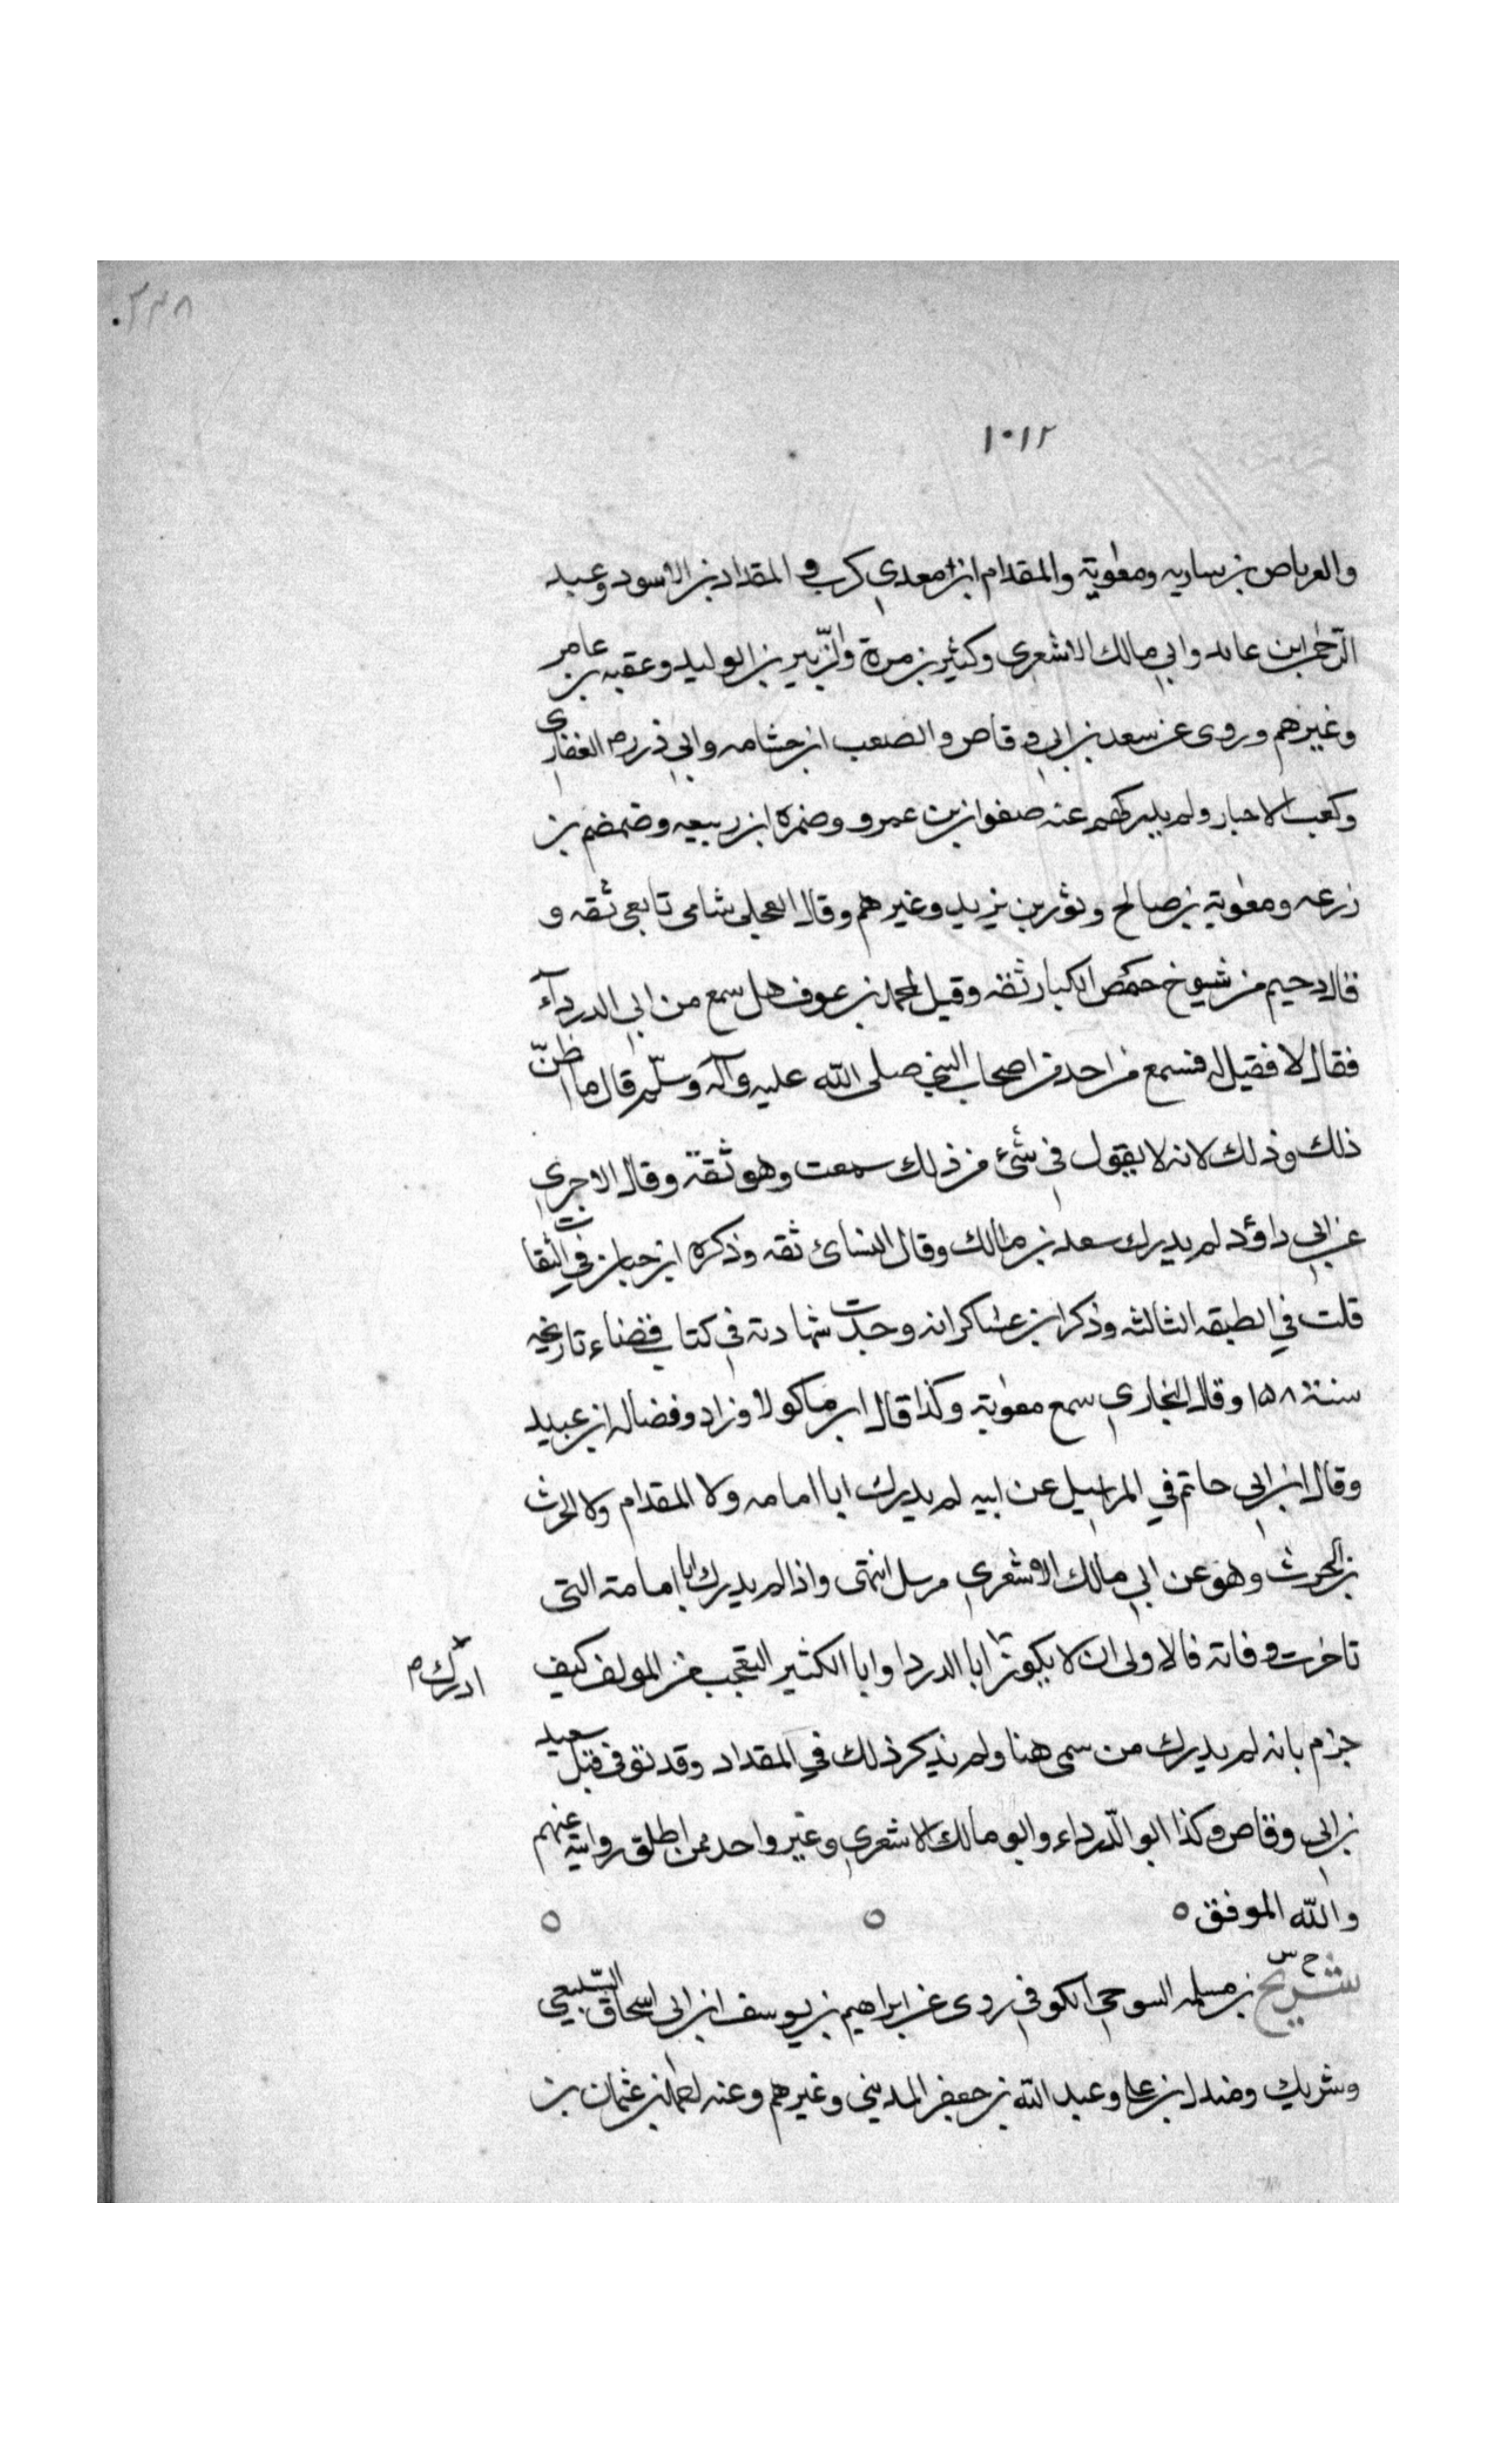 ٣٣٨
١٠١٢
والعرباض بن ساريه ومعوية والمقدام ابن معدي كرب و المقداد بن الاسود وعبد
الرحمن ابن عايد وابي مالك الاشعري وكثير بن مرة والزبير بن الوليد وعقبه بن عامر
وغيرهم وروى عن سعد بن ابي وقاص والصعب ابن جثامه وابي ذر رم الغفاري
وكعب الاحبار ولم يدركهم عنه صفوان بن عمرو وضمرة ابن ربيعه وضمضم بن
زرعه ومعوية بن صالح وثور بن يزيد وغيرهم وقال العجلي شامى تابعي ثقه و
قال دحيم من شيوخ حمص الكبار ثقه وقيل لمحمد بن عوف هل سمع من ابي الدرداء
فقال لا فقيل له فسمع من احد من اصحاب النبي صلى الله عليه وآله وسلم قال ما اظن
ذلك وذلك لانه لا يقول في شئ من ذلك سمعت وهو ثقة وقال الاجري
عن ابي داؤد لم يدرك سعد بن مالك وقال النسائ ثقه وذكره ابن حبان في الثقات
قلت في الطبقه الثالثه وذكر ابن عساكر انه وجدت شهادته في كتاب قضاء تاريخه
سنة ١٥٨ وقال البخاري سمع معوية وكذا قال ابن ماكولا وزاد وفضاله ابن عبيد
وقال ابن ابي حاتم في المراسيل عن ابيه لم يدرك ابا امامه ولا المقدام ولا الحرث
بن الحرث وهو عن ابي مالك الاشعري مرسل انتهى واذا لم يدرك ابا امامة التي
تاخرت وفاته فالاولى ان لا يكون ابا الدردا وابا الكثير التعجب من المولف كيف
ادرك م
جزم بانه لم يدرك من سمى هنا ولم يذكر ذلك في المقداد وقد توفى قبل سعيد
بن ابي وقاص وكذا ابو الدرداء وابو مالك الاشعري وغير واحد ممن اطلق روايته عنهم
والله الموفق
شريح بن مسلمه السوحي الكوفي روى عن ابراهيم بن يوسف ابن ابي اسحاق السبيعي
وشريك ومندل ابن علي وعبد الله بن جعفر المديني وغيرهم وعنه احمد بن عثمان بن